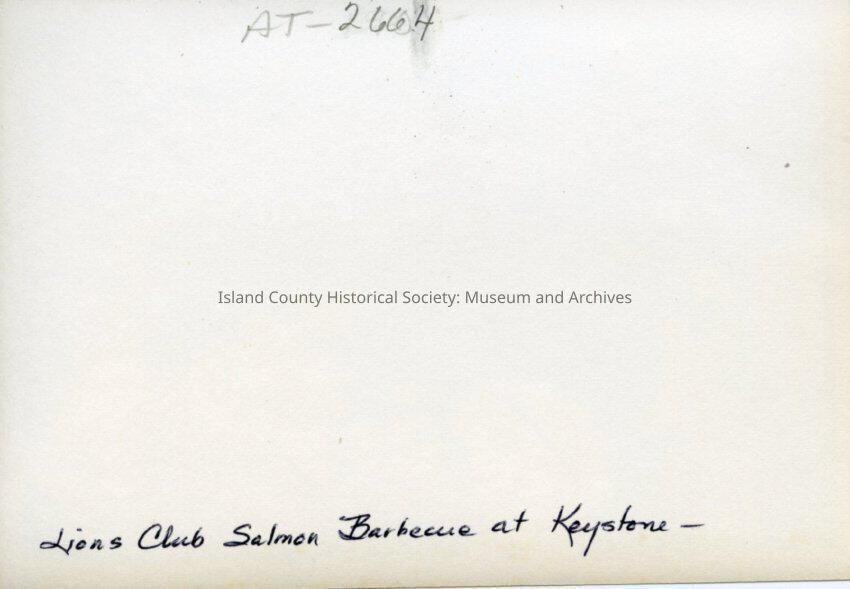 AT-2664
Island County Historical Society: Museum and Archives
Lions Club Salmon Barbecue at Keystone —